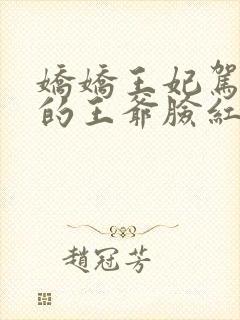 嬌嬌王妃駕
的王爺臉紅
趙冠芳